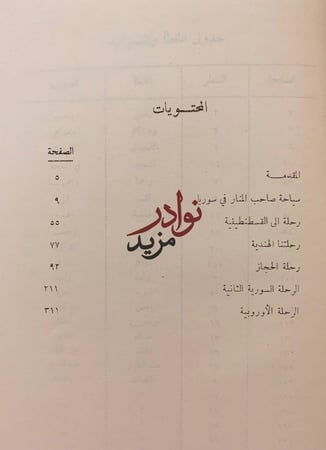 المحتويات
الصفحة
المقدمة ٥
سياحة صاحب المنار في سوريا ٩
رحلة الى القسطنطينية ٥٥
رحلتنا الهندية ٧٧
رحلة الحجاز ٩٢
الرحلة السورية الثانية ٢١١
الرحلة الأوروبية ٣١١
نوادر
مزيد